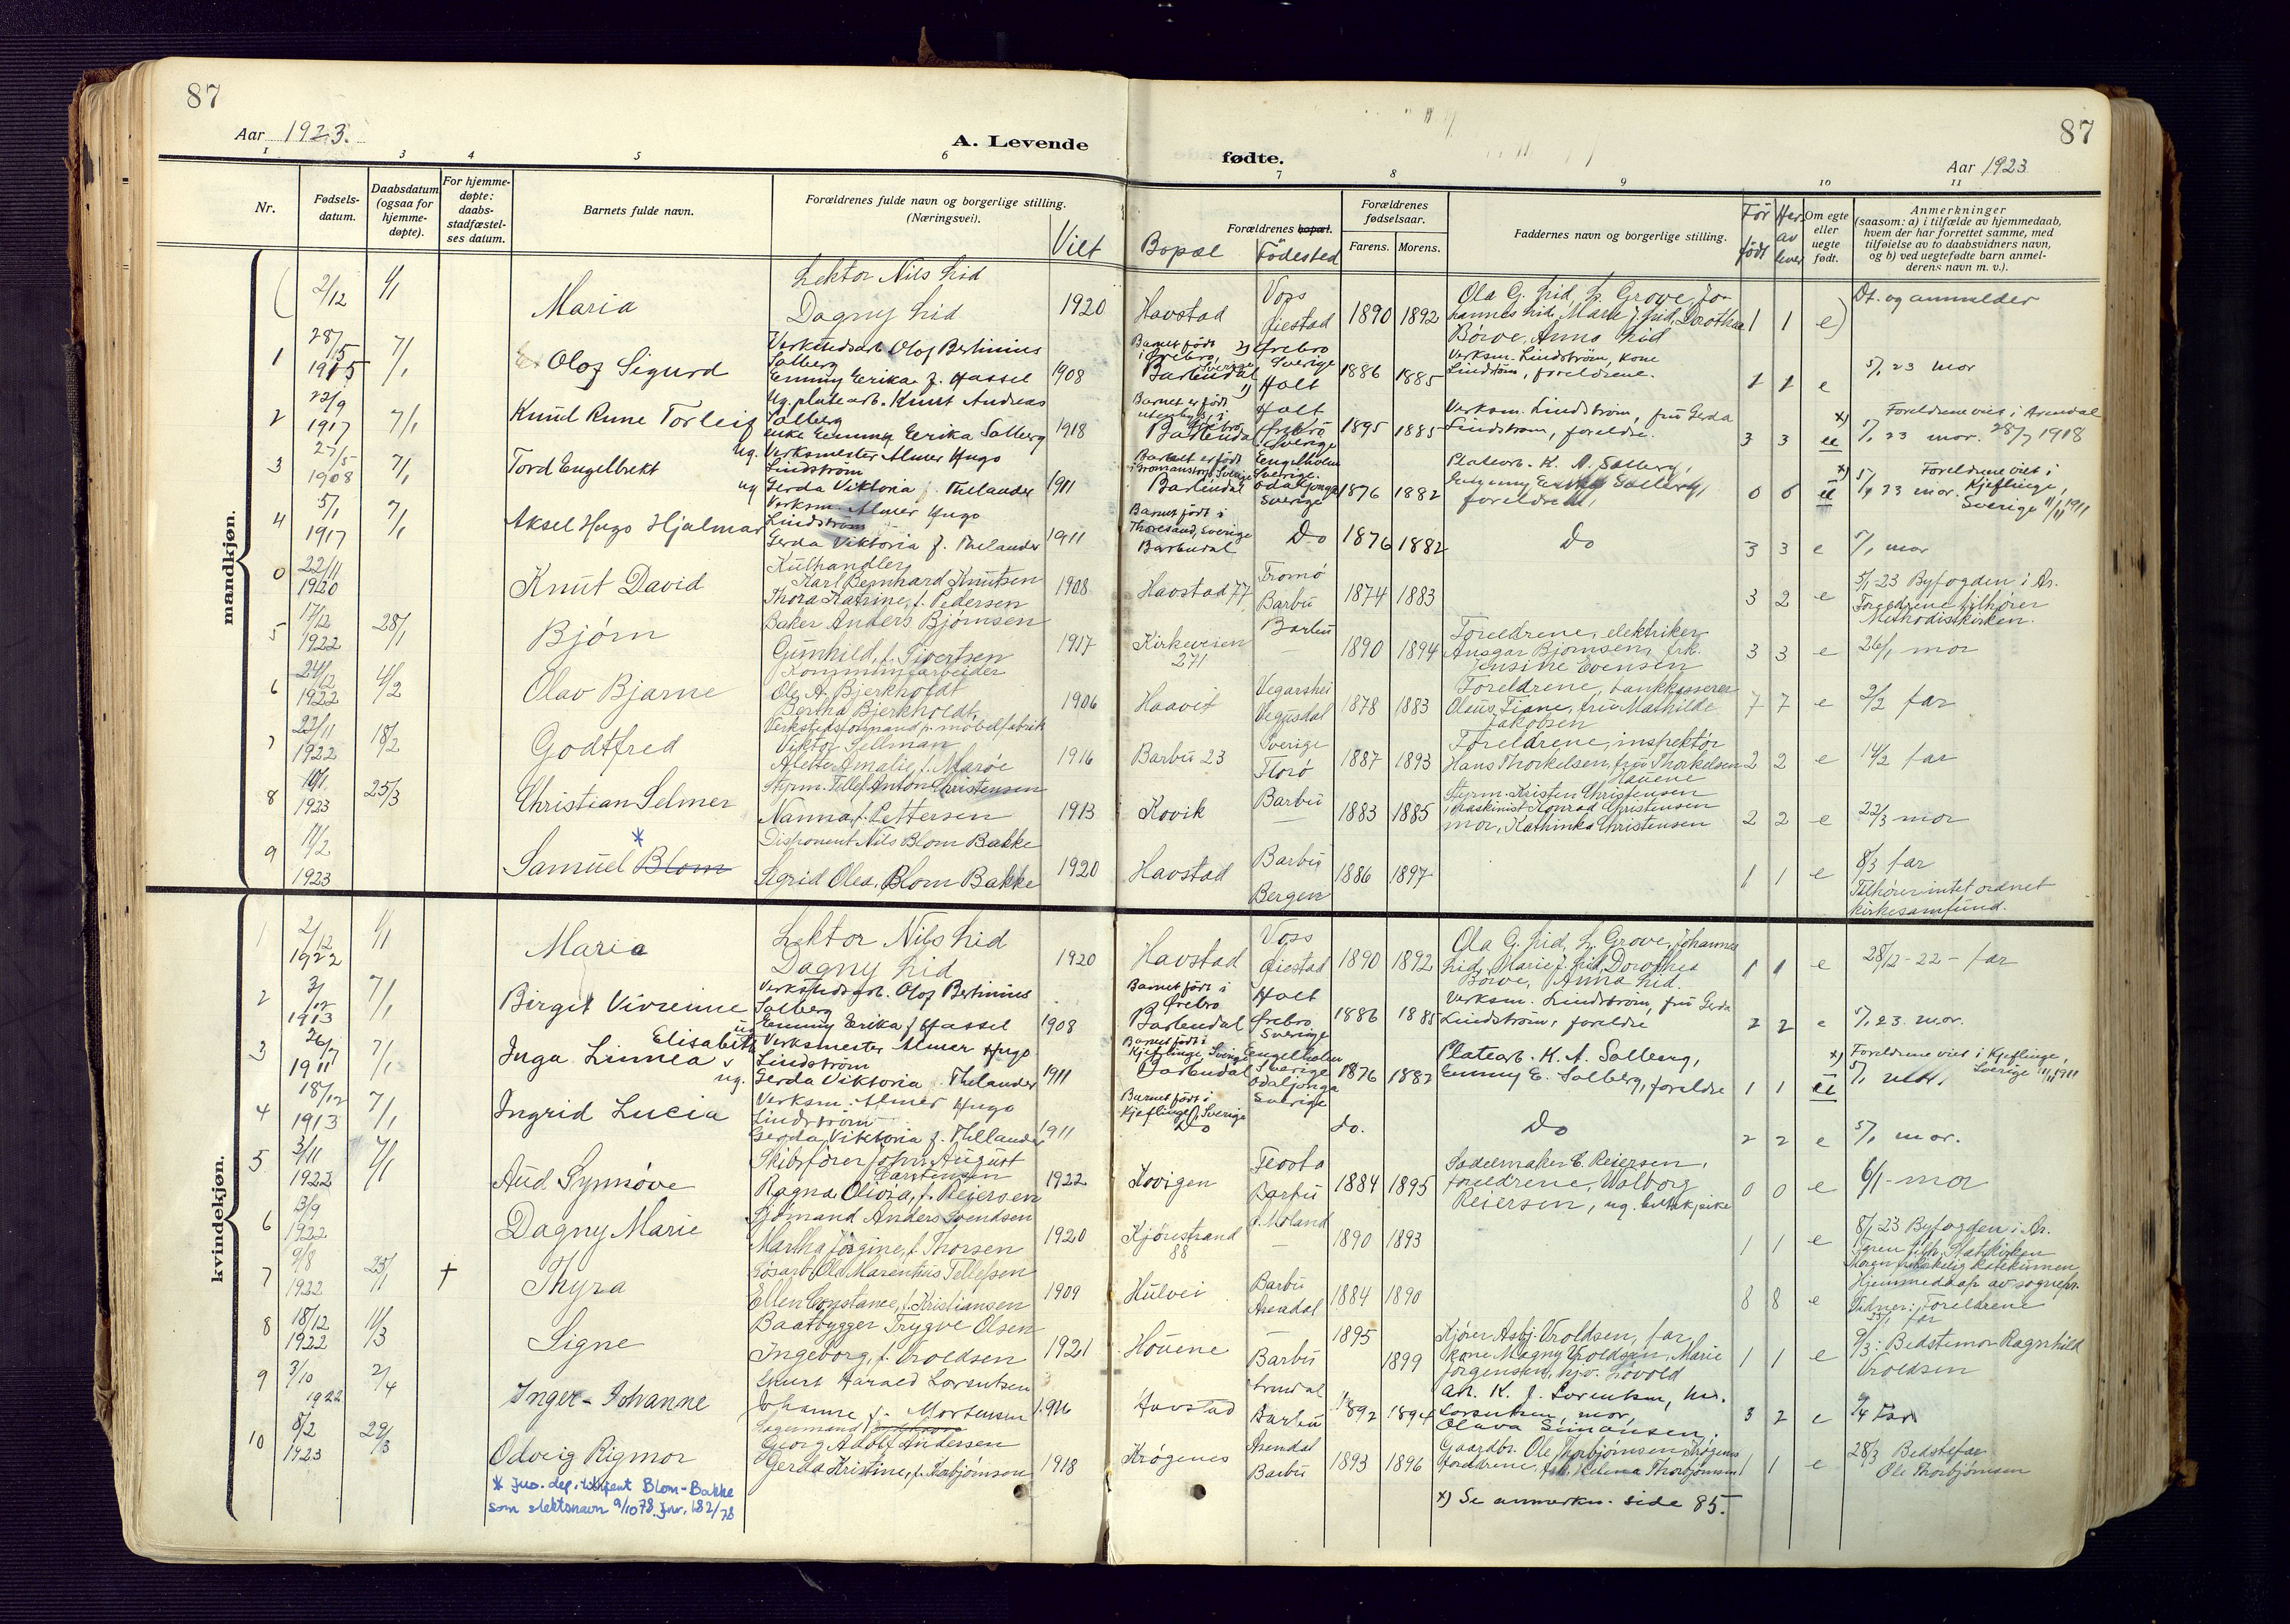 87
87
Aar 1923.
A. Levende
fødte.
Aar 1923
1
3
4
5
6
7
8
9
10
11
Nr.
Fødsels-
datum.
Daabsdatum
(ogsaa for
hjemme-
døpte).
For hjemme-
døpte:
daabs-
stadfæstel-
ses datum.
Barnets fulde navn.
Forældrenes fulde navn og borgerlige stilling.
(Næringsvei).
Vilt
Forældrenes bopæl.
Bopæl
Födested
Forældrenes
fødselsaar.
Farens.
Morens.
Faddernes navn og borgerlige stilling.
Før
født
Her-
av
lever
Om egte
eller
uegte
født.
Anmerkninger
(saasom: a) i tilfælde av hjemmedaab,
hvem der har forrettet samme, med
tilføielse av to daabsvidners navn,
og b) ved uegtefødte barn anmel-
derens navn m. v.).
mandkjøn.
2/12
1/1
Maria
Lektor Nils Lid
Dagny Lid
1920
Havstad
Voss
Øiestad
1890
1892
Ola G. Lid, L. Grove, Jo-
hannes Lid, Marie J. Lid, Dorothea
Børve, Anna Lid
1
1
e)
Dt. og anmelder
1
28/5
1905
7/1
Olof Sigurd
Verkstedsarb. Olof Bertinius
Salberg
Emmy Erika f. Hassel
1908
Barnet født
i Ørebro, Sverige
Barbudal
2) Ørebro
Sverige
1) Holt
1886
1885
Verksm. Lindström, kone
Lindström, foreldrene.
1
1
e
5/1 23 mor
2
22/9
1917
7/1
Knud Rune Torleif
Ug. platearb. Knut Andreas
Salberg
enke Emmy Erika Salberg
1918
Barnet er født
utenbys, i
Ørebro
Barbudal
Holt
Ørebro
Sverige
1895
1885
Verksm. Lindström, fru Gerda
Lindström, foreldre.
3
3
u
x) Foreldrene viet i Arendal
5/1 23 mor. 28/7 1918
3
27/5
1908
7/1
Tord Engelbrekt
ug. Verksmester Almer Hugo
Lindström
ug Gerda Viktoria f. Thelander
1911
Barnet er født
Barbudal
Engelholm
Sverige.
Odaljonga
Sverige
1876
1882
Platearb. K. A. Salberg,
Emmy Erika Salberg,
foreldrene,
0
0
u
x) Foreldrene viet i
5/1 23 mor. Kjeflinge,
Sverige 11/11 1911
4
5/1
1917
7/1
Aksel Hugo Hjalmar
Verksm. Almer Hugo
Lindström
Gerda Viktoria f. Thelander
1911
Barnet født i
Barbudal
Do
1876
1882
Do
3
3
e
5/1 mor
0
22/11
1920
Knut David
Kulhandler
Karl Bernhard Knutsen
Thora Katrine, f. Pedersen
1908
Havstad 77
Tromø
Barbu
1874
1883
3
2
e
5/1-23 Byfogden i Ar.
Foreldrene tilhører
Methodistkirken.
5
17/12
1922
28/1
Bjørn
Baker Anders Bjørnsen
Gunhild, f. Sivertsen
1917
Kirkeveien
271
Barbu
—
1890
1894
Foreldrene, elektriker
Ansgar Bjørnsen, frk.
Jensine Evensen
3
3
e
26/1 mor
6
24/12
1922
4/2
Olav Bjarne
Kommunearbeider
Ole A. Bjerkholdt
Bertha Bjerkholdt,
1906
Haavet
Vegarshei
Vegusdal
1878
1883
Foreldrene, bankkasserer
Olaus Tiane, fru Mathilde
Jakobsen
7
7
e
2/2 far
7
22/11
1922
18/2
Godtfred
Verkstedsformand p. møbelfabrik
Viktor Sellman
Alette Amalie, f. Marøe
1916
Barbu 23
Sverige
Florø
1887
1893
Foreldrene, inspektør
Hans Thorkelsen, fru Thorkelsen
Hauene
2
2
e
14/2 far
8
10/1
1923
25/3
Christian Selmer
Styrm. Tellef Anton Christensen
Nanna, f. Pettersen
1913
Kovik
Barbu
—
1883
1885
Styrm. Kristen Christensen
maskinist Konrad Christensen
mor, Kathinka Christensen
2
2
e
22/3 mor
9
17/2
1923
*
Samuel Blom
Disponent Nils Blom Bakke
Sigrid Olea, Blom Bakke
1920
Havstad
Barbu
Bergen
1886
1897
1
1
e
8/3 far
Tilhører intet ordnet
kirkesamfund.
kvindekjøn.
1
2/12
1922
1/1
Maria
Lektor Nils Lid
Dagny Lid
1920
Havstad
Voss
Øiestad
1890
1892
Ola G. Lid, L. Grove, Johannes
Lid, Marie J. Lid, Dorothea
Børve, Anna Lid.
1
1
e
28/12-22 - far
2
3/12
1913
7/1
Birgit Vivienne
Verkstedsarb. Olof Bertinius
Salberg
Emmy Erika f Hassel
1908
Barnet født i
Ørebro
Barbudal
Holt
Ørebro
Sverige
1886
1885
Verksm. Lindström, fru Gerda
Lindström, foreldre
2
2
e
5/1 23. mor.
3
1911
7/1
Inga Linnea Elisabeth
ug Verksmester Almer Hugo
Lindström
ug. Gerda Viktoria f. Thelander
1911
Barnet født i
Kjeflinge, Sverige
Barbudal
Engelholm
Sverige
Odaljonga
Sverige
1876
1882
Platearb. K. A. Salberg,
Emmy E. Salberg, foreldre
1
1
u
x) Foreldrene viet i Kjeflinge,
Sverige 11/11 1911
5/1 mor.
4
18/12
1913
7/1
Ingrid Lucia
Verksm. Almer Hugo
Lindström
Gerda Viktoria f. Thelander
1911
Barnet født i
Kjeflinge, Sverige
Do
do.
Do
2
2
e
5/1 mor.
5
3/11
1922
7/1
Aud Synnøve
Skibsfører John August
Carstensen
Ragna Olivia, f. Reiersen
1922
Kovigen
Flosta
Barbu
1884
1895
Sadelmaker E. Reiersen,
foreldrene, Walborg
Reiersen, ug. butikpike
0
0
e
6/1 - mor
6
13/9
1922
Dagny Marie
Sjømand Anders Svendsen
Martha Jørgine, f. Thorsen
1920
Kjørestrand
88
Ø. Moland
—
1890
1893
1
1
e
8/1 23 Byfogden i Ar.
Faren tilh. Statskirken
7
9/8
1922
25/1
†
Thyra
Løsarb. Ole Marentius Tellefsen
Ellen Constance, f. Kristiansen
1909
Hulvei
Barbu
Arendal
1884
1890
8
8
e
Hjemmedøpt av sognepr.
Vidner: Foreldrene
25/1 far
8
18/12
1922
11/3
Signe
Baatbygger Trygve Olsen
Ingeborg, f. Vroldsen
1921
Hauene
—
Barbu
1895
1899
Kjører Asbj. Vroldsen, far,
kone Magny Vroldsen, Marie
Jørgensen, hjv. Løvold
1
1
e
9/3: Bedstemor Ragnhild
Vroldsen
9
3/10
1922
2/4
Inger-Johanne
Harald Lorentsen
Johanne f. Mortensen
1916
Havstad
Arendal
Barbu
1892
1894
K. J. Lorentsen,
Lorentsen, mor,
Olava Simonsen.
3
2
e
Far
10
8/2
1923
29/3
Odvig Rigmor
Georg Adolf Andersen
Gerda Kristine, f. Thorbjørnsen
1918
Krøgenes
Arendal
Barbu
1893
1896
Gaardbr. Ole Thorbjørnsen, Krøgenes
foreldrene, frk. Helena Thorbjørnsen
1
1
e
28/3 Bedstefar
Ole Thorbjørnsen
* Jus. dep. Blom-Bakke
som slektsnavn 9/10 78. Jnr. 182/78
x) Se anmerkn. side 85.